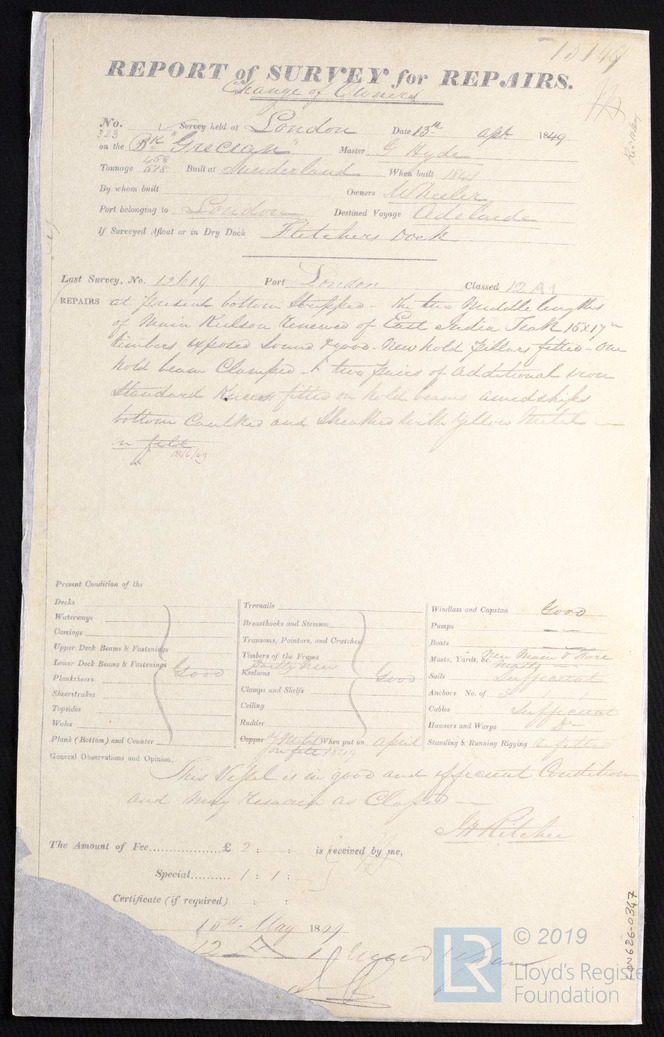 13149
REPORT of SURVEY for REPAIRS.
Change of Owners
No. 323 Survey held at London Date 13th April 1849
on the Bk "Grecian" Master G Hyde
Tonnage 458 518 Built at Sunderland When built 1841
By whom built Owners Wheeler
Port belonging to London Destined Voyage Adelaide
If Surveyed Afloat or in Dry Dock Fletchers Dock
Last Survey, No. 12619 Port London Classed 12 A1
REPAIRS at present bottom stripped - the two Middle lengths
of Main Keelson renewed of East India Teak 15x17 in
timbers exposed sound & good - New hold Pillars fitted - One
hold beam Clamped - & two pairs of Additional iron
Standard Knees fitted on hold beams amidships
bottom Caulked and Sheathed with yellow Metal
on felt
18/6/49
Present Condition of the
Decks
Waterways
Comings
Upper Deck Beams & Fastenings
Lower Deck Beams & Fastenings Good
Planksheers
Sheerstrakes
Topsides
Wales
Plank (Bottom) and Counter
Treenails
Breasthooks and Stemson
Transoms, Pointers, and Crutches
Timbers of the Frame
Keelsons partly new Good
Clamps and Shelfs
Ceiling
Rudder
Copper Y Metal on felt When put on April 1849
Windlass and Capstan Good
Pumps
Boats
Masts, Yards, &c. New Main & Fore Masts
Sails Sufficient
Anchors No. of
Cables Sufficient
Hawsers and Warps Do
Standing & Running Rigging refitted
General Observations and Opinion.
This Vessel is in good and efficient Condition
and may remain as Classed
J H Ritchie
The Amount of Fee £ 2 : : is received by me,
Special 1 : 1 :
Certificate (if required) : :
15th May 1849
12
LR © 2019
Lloyd's Register
Foundation
LON626-0347